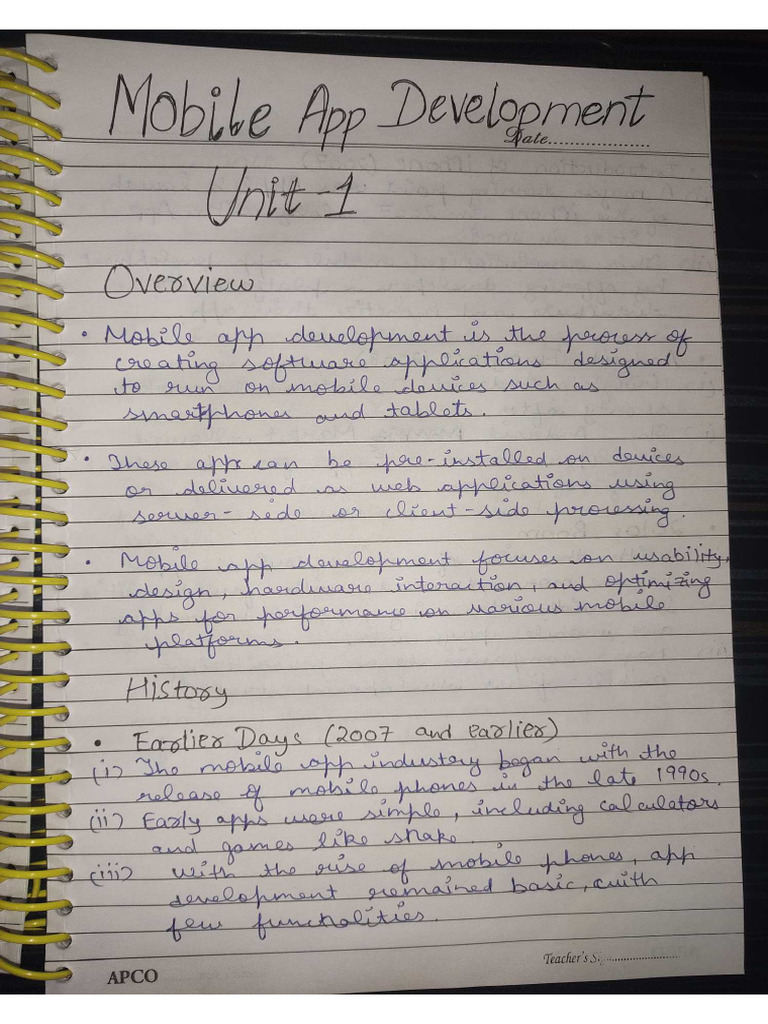 Mobile App Development
Date
Unit-1
Overview
• Mobile app development is the process of
creating software applications designed
to run on mobile devices such as
smartphones and tablets.
• These apps can be pre-installed on devices
or delivered as web applications using
server-side or client-side processing.
• Mobile app development focuses on usability,
design, hardware interaction, and optimizing
apps for performance on various mobile
platforms.
History
• Earlier Days (2007 and earlier)
(i) The mobile app industry began with the
release of mobile phones in the late 1990s.
(ii) Early apps were simple, including calculators
and games like snake.
(iii) with the rise of mobile phones, app
development remained basic, with
few functnalities.
Teacher's S
APCO